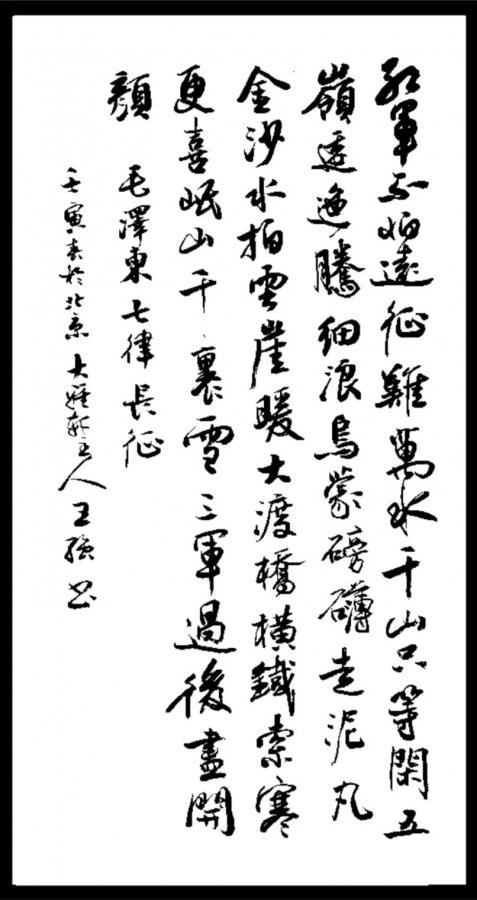 红軍不怕遠征難萬水千山只等閑五
嶺逶迤騰細浪烏蒙磅礴走泥丸
金沙水拍雲崖暖大渡橋橫鐵索寒
更喜岷山千裏雪三軍過後盡開
顏
毛澤東七律長征
壬寅春於北京大雅軒主人王強书